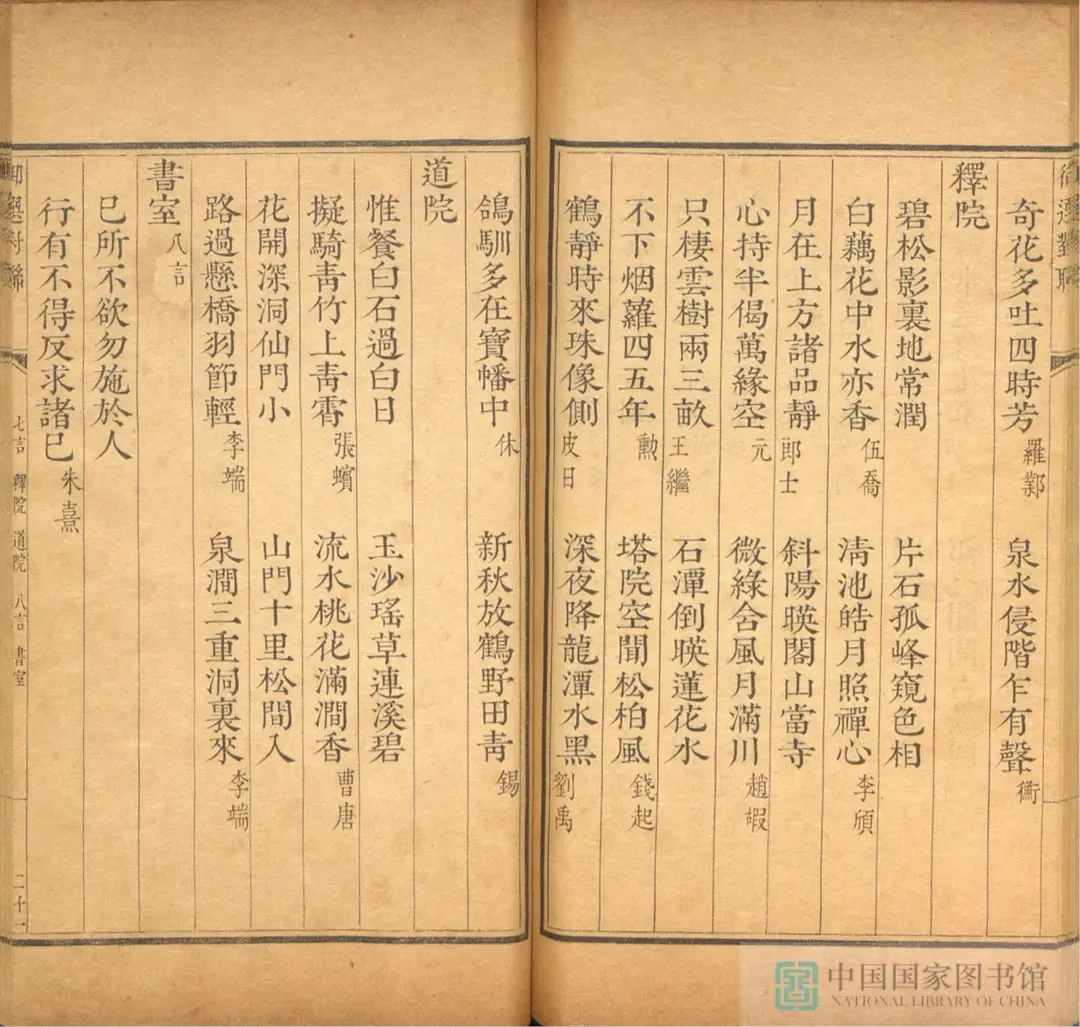 御選對聯
奇花多吐四時芳 羅鄴 泉水侵階乍有聲 衞
釋院
碧松影裏地常潤 片石孤峰窺色相
白藕花中水亦香 伍喬 清池皓月照禪心 李頎
月在上方諸品靜 郎士 斜陽暎閣山當寺
心持半偈萬緣空 元 微綠含風月滿川 趙嘏
只棲雲樹兩三畝 王繼 石潭倒暎蓮花水
不下烟蘿四五年 勲 塔院空聞松柏風 錢起
鶴靜時來珠像側 皮日 深夜降龍潭水黑 劉禹
鴿馴多在寶幡中 休 新秋放鶴野田靑 錫
道院
惟餐白石過白日 玉沙瑤草連溪碧
擬騎靑竹上靑霄 張蠙 流水桃花滿澗香 曹唐
花開深洞仙門小 山門十里松間入
路過懸橋羽節輕 李端 泉澗三重洞裏來 李端
書室 八言
己所不欲勿施於人
行有不得反求諸己 朱熹
御選對聯 七言 釋院 道院 八言 書室 二十一
中国国家图书馆
NATIONAL LIBRARY OF CHINA